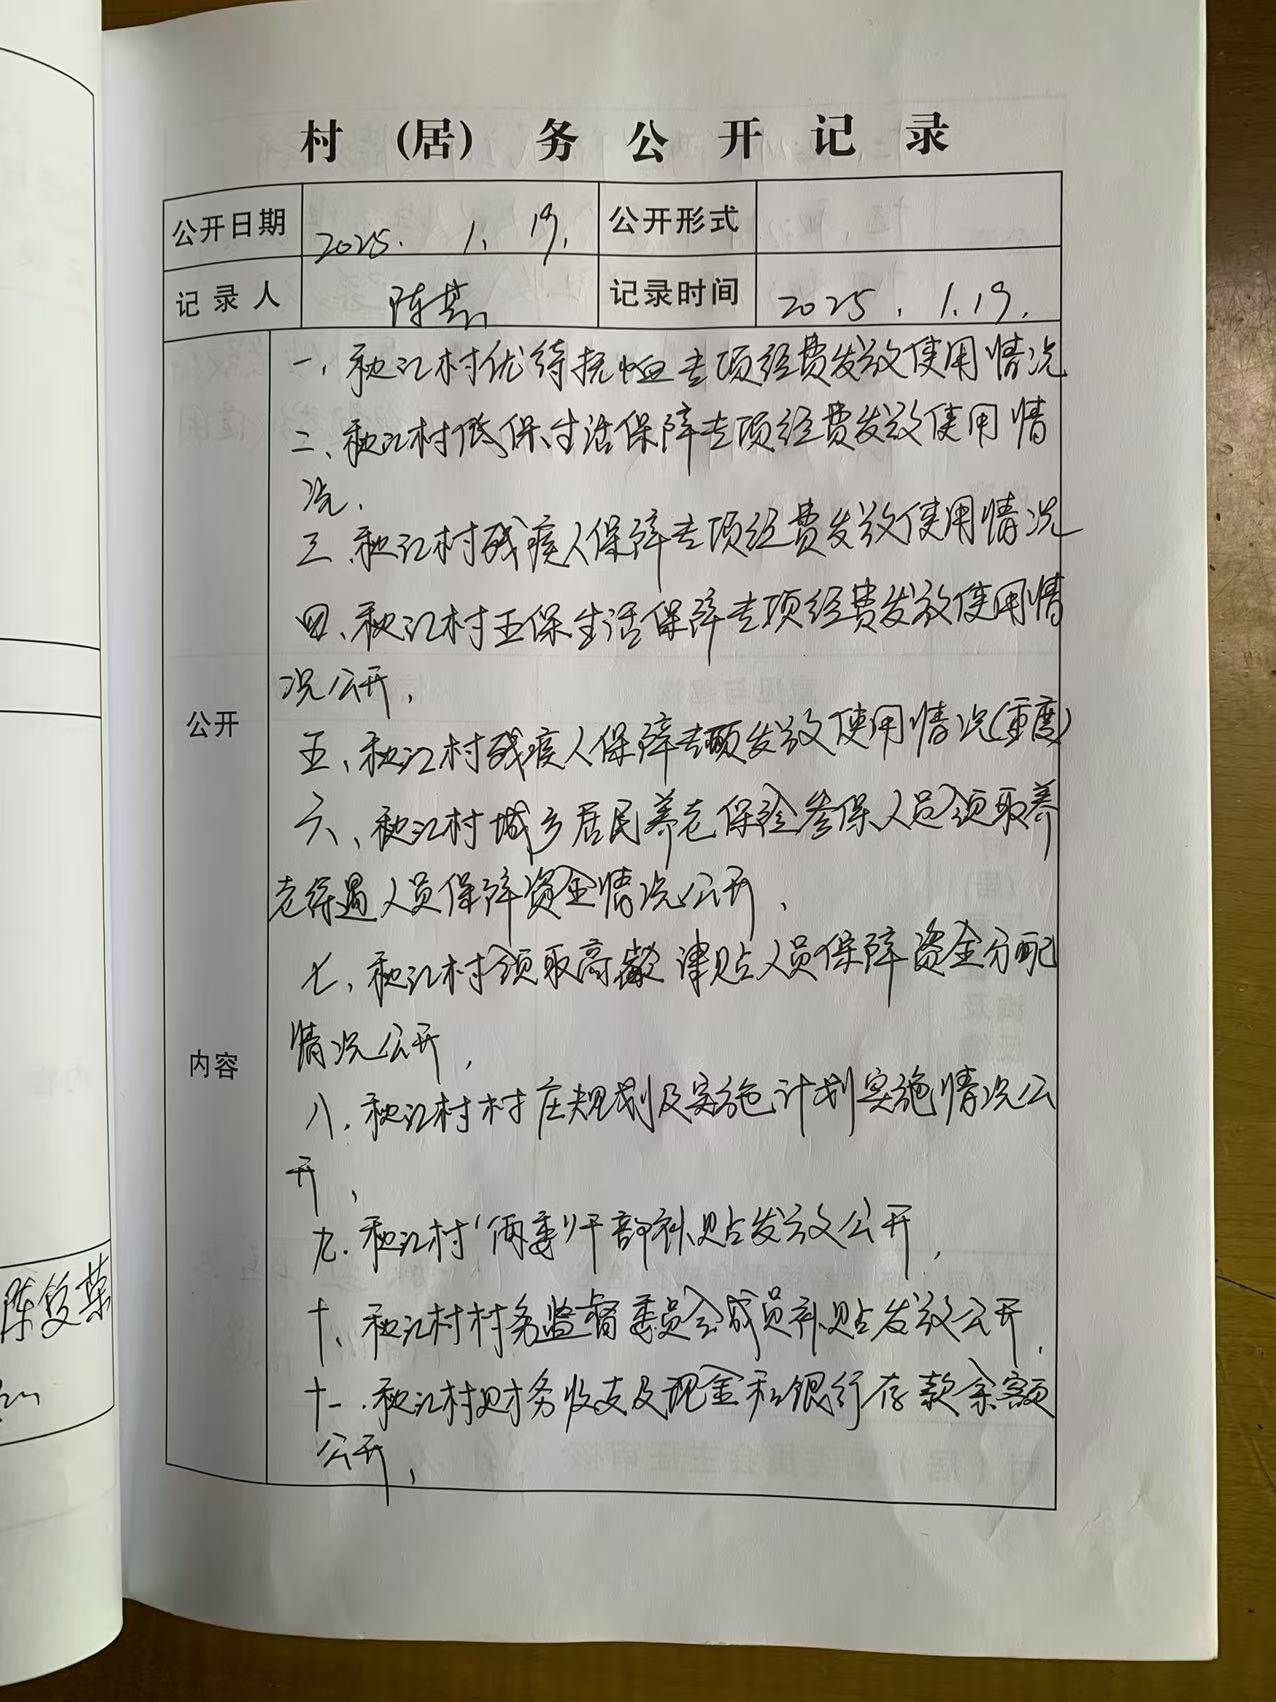 村（居）务公开记录
公开日期 2025.1.19. 公开形式
记录人 陈 记录时间 2025.1.19.
一、秋江村优待抚恤专项经费发放使用情况
二、秋江村低保生活保障专项经费发放使用情
况.
三、秋江村残疾人保障专项经费发放使用情况
四、秋江村五保生活保障专项经费发放使用情
况公开、
五、秋江村残疾人保障专项发放使用情况(重度)
六、秋江村城乡居民养老保险参保人员领取养
老待遇人员保障资金情况公开、
七、秋江村领取高龄津贴人员保障资金分配
情况公开、
八、秋江村村庄规划及实施计划实施情况公
开、
九、秋江村“两委”干部补贴发放公开、
十、秋江村村务监督委员会成员补贴发放公开、
十一、秋江村财务收支及现金和银行存款余额
公开、
公开
内容